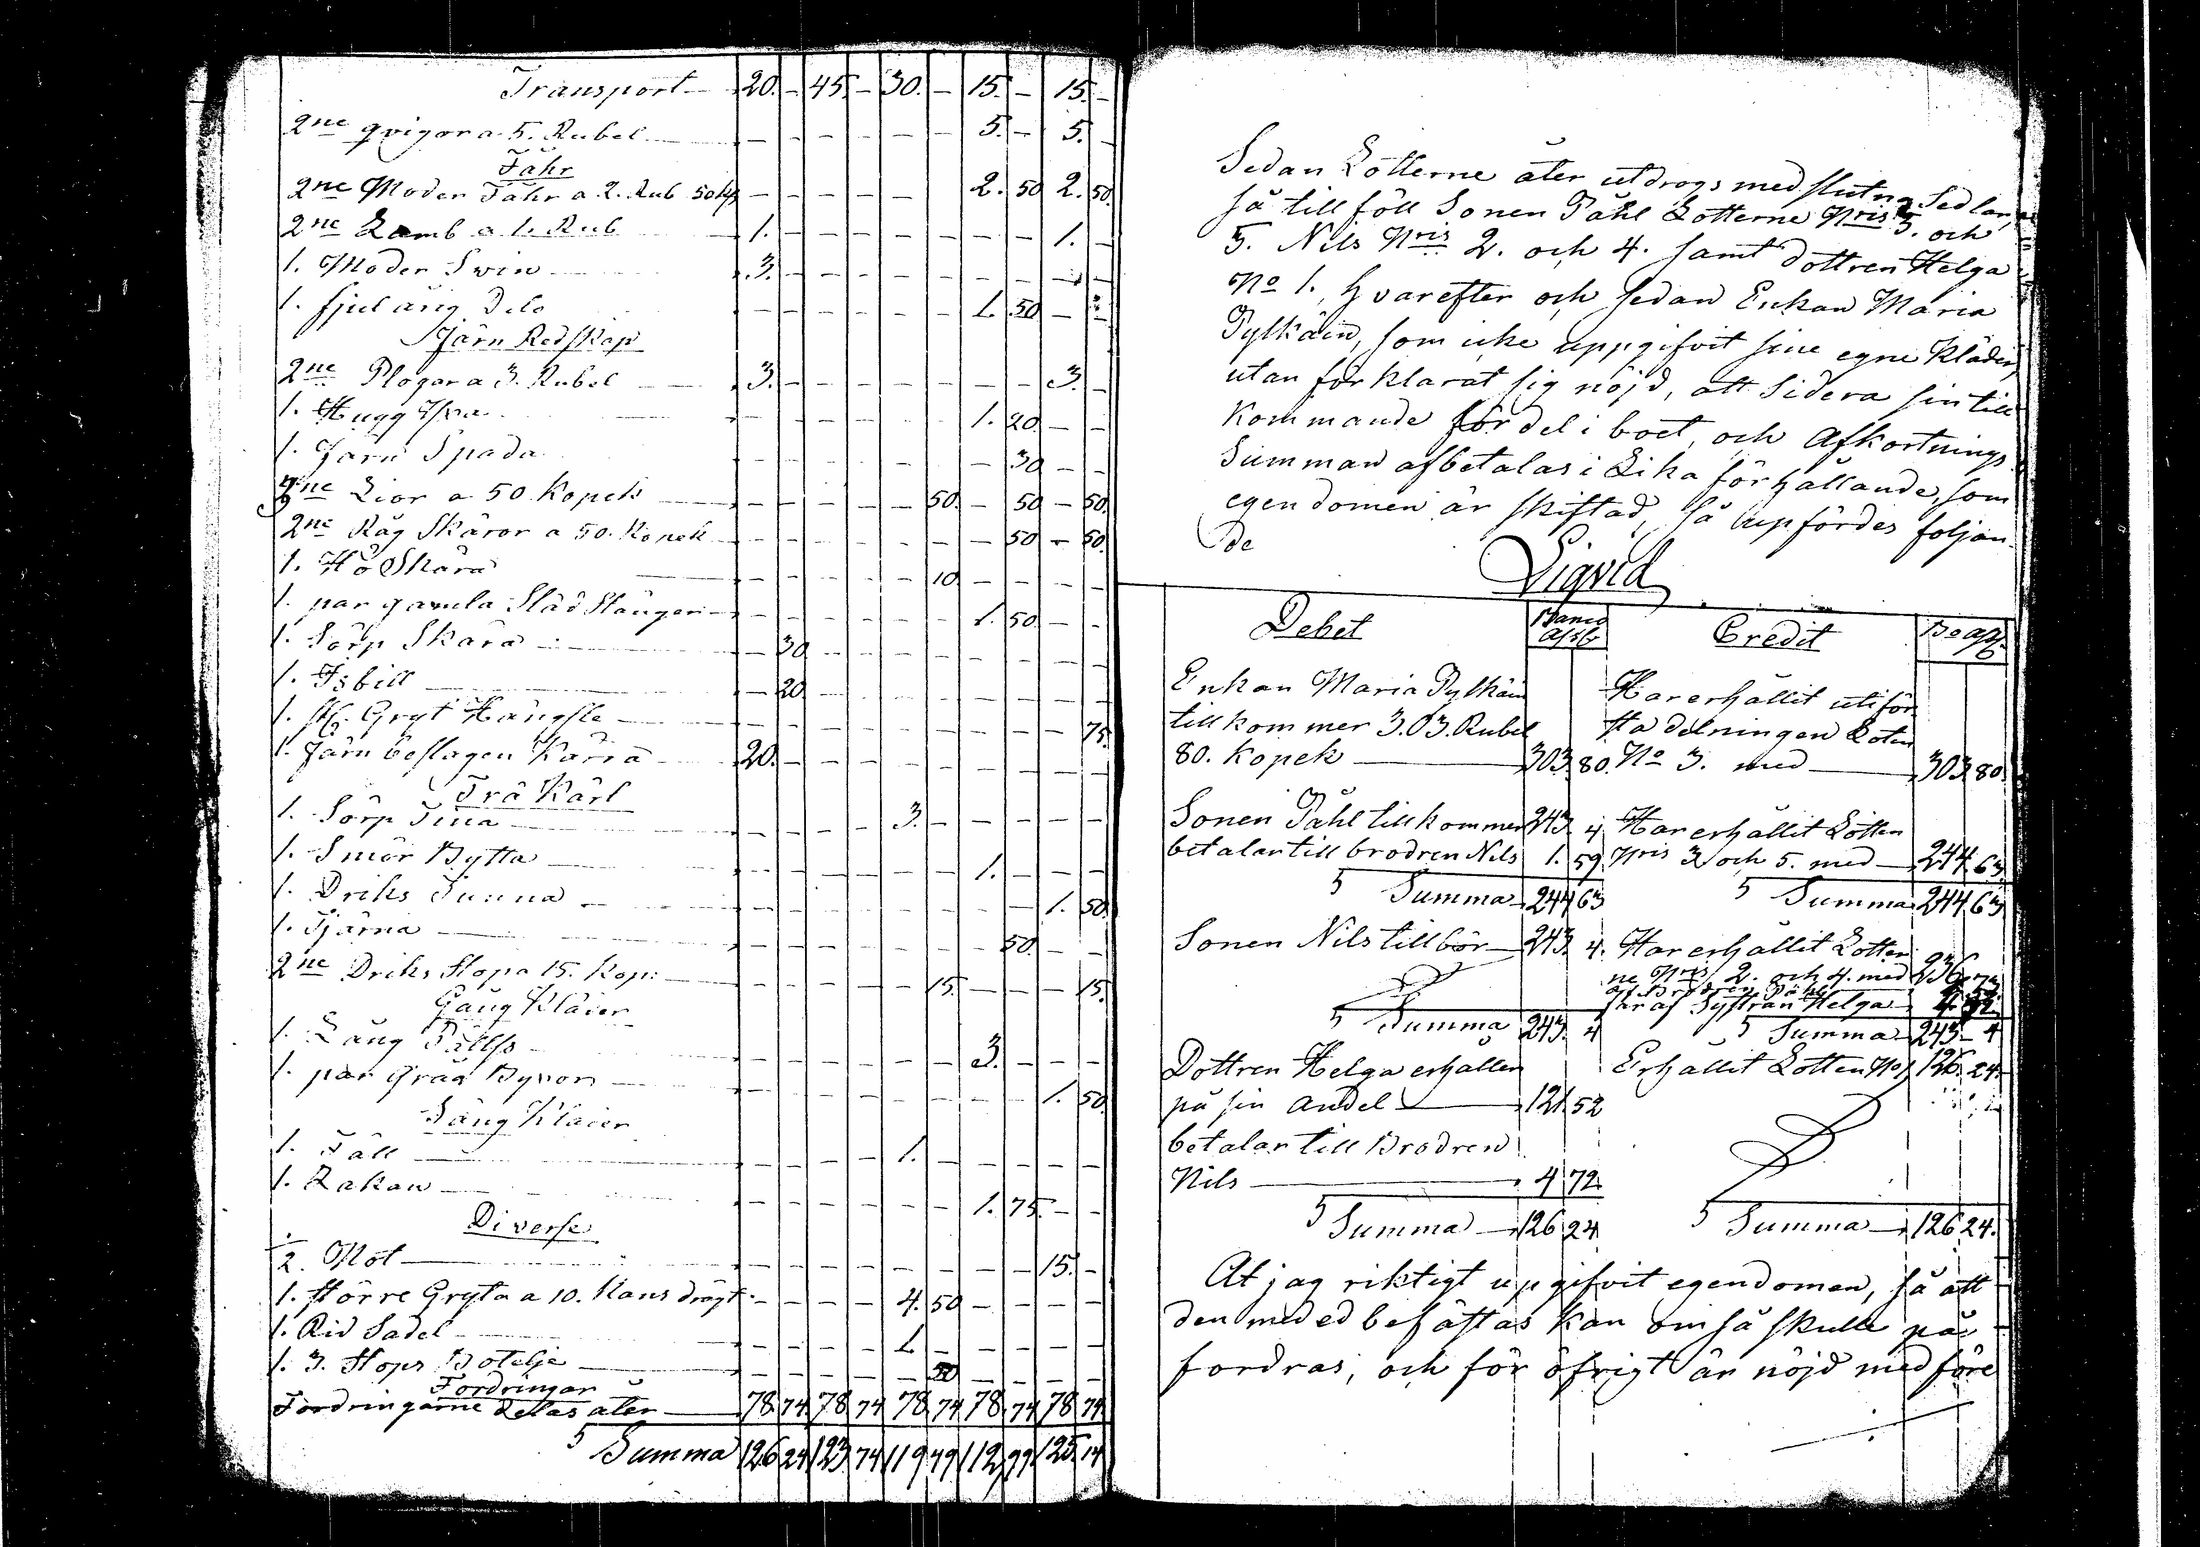 Transport 20. – 45. – 30. – 15. – 15. –
2ne qvigor a 5. Rubel – – – – – – 5. – 5. –
Fåhr
2ne Moder Fåhr a 2. Rub 50 k – – – – – – 2. 50 2. 50.
2ne Lamb a 1. Rub 1. – – – – – – – 1. –
1. Moder Svin 3. – – – – – – – – –
1. fjol årig Dito – – – – – – 1. 50 – –
Järn Redskap
2ne Plogar a 3. Rubel 3. – – – – – – – 3. –
1. Hugg Yxa – – – – – – 1. 20 – –
1. Järn Spada – – – – – – – 30 – –
3ne Lior a 50 Kopek – – – – – 50. – 50 – 50.
2ne Råg Skäror a 50. Kopek – – – – – – – 50 – 50.
1. Hö Skära – – – – – 10 – – – –
1. par gamla Släd Stänger – – – – – – 1. 50 – –
1. Sörp Skära – 30 – – – – – – – –
1. Isbill – 20 – – – – – – – –
1. st. Gryt Hängsle – – – – – – – – – 75.
1. Järn beslagen Kärra 20. – – – – – – – – –
Trä Kärl
1. Sörp Tina – – – – 3. – – – – –
1. Smör Bytta – – – – – – 1. – – –
1. Driks Tunna – – – – – – – – 1. 50
1. Tjärna – – – – – – – 50. – –
2ne Driks Stopa 15. Kop: – – – – – 15. – – – 15.
Gång Kläder
1. Lång Pällss – – – – – – 3. – – –
1. par Gråa Byxor – – – – – – – – 1. 50
Säng Kläder
1. Fäll – – – – 1. – – – – –
1. Lakan – – – – – – 1. 75. – –
Diverse
2. Not – – – – – – – – 15. –
1. större Gryta a 10. Kans drägt – – – – 4. 50 – – – –
1. Rid Sadel – – – – 1. – – – – –
1. 3. Stops Botelje – – – – – 50 – – – –
Fordringar
Fordringarne delas åter 78. 74. 78 74 78 74 78. 74 78 74.
Summa 126 24 123. 74 119 49 112 99 125. 14
Sedan Lotterne åter utdrogs med slutna Sedlar,
så till föll Sonen Påhl Lotterne Nris 3. och
5. Nils Nris 2. och 4. samt dottren Helga
No 1., hvarefter och sedan Enkan Maria
Pylkäin, som icke uppgifvit sine egne Kläder,
utan förklarat sig nöjd, att Sidera sin till
kommande fördel i boet, och Afkortnings
Summan afbetalas i Lika förhållande, som
egendomen är skiftad, så upfördes följan
de
Liqvid
Debet Banco Ass Credit Bo Ass
Enkan Maria Pylkäin
tillkommer 303. Rubel
80. Kopek 303. 80.
Har erhållit uti för
sta delningen Loten
No 3. med 303 80.
Sonen Påhl tillkommer 243. 4
betalar till brodren Nils 1. 59
Summa 244 63
Har erhållit Lotten
Nris 3 och 5. med 244. 63
Summa 244 63
Sonen Nils tillhör 243. 4.
Summa 243. 4
Har erhållit Lotter
ne Nris 2. och 4. med 236. 73
af Brodren Påhl
får af Systran Helga 4. 72
Summa 243 – 4
Dottren Helga erhåller
på sin andel 121. 52
betalar till Brodren
Nils 4 72
Summa 126 24
Erhållit Lotten No 1. 126. 24.
Summa 126 24.
At jag riktigt upgifvit egendomen, så att
den med ed befästas kan om så skulle på
fordras, och för öfrigt är nöjd med före